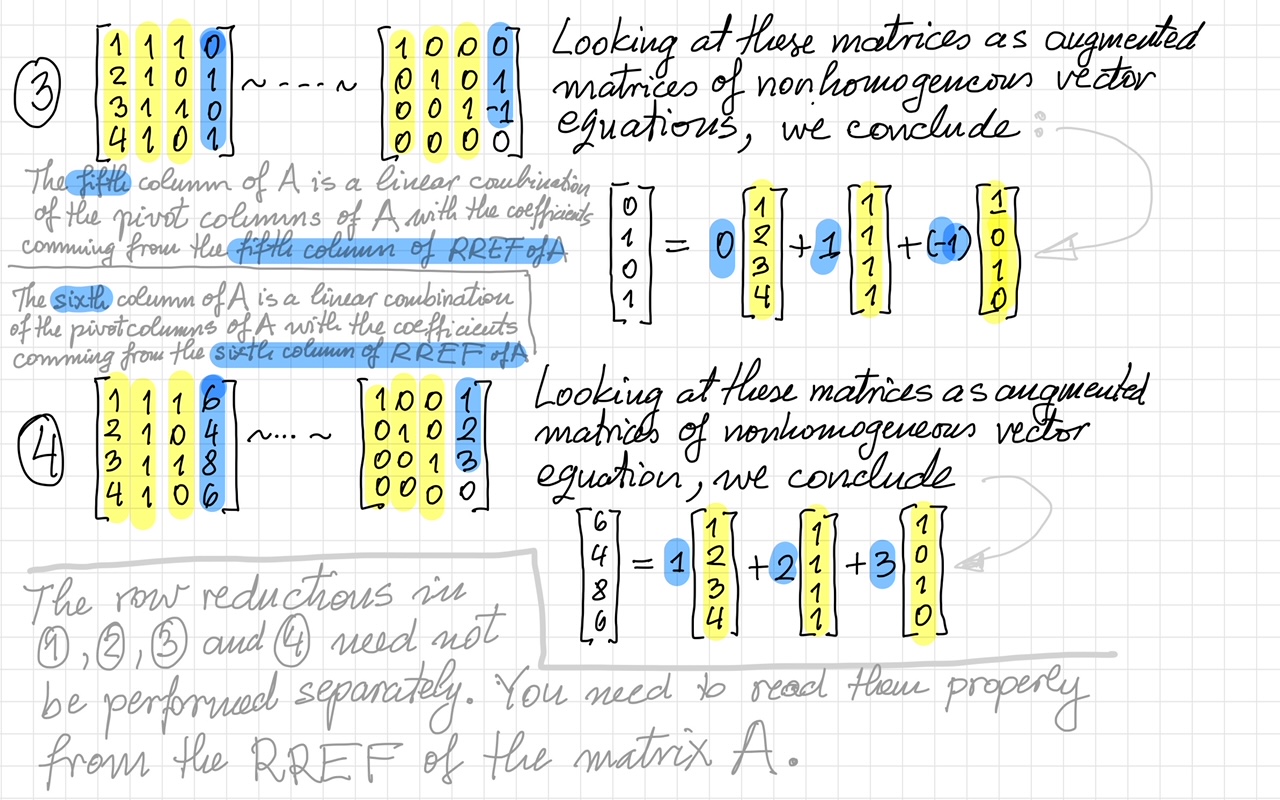 ③
1 1 1 0
2 1 0 1
3 1 1 0
4 1 0 1
~ - - - ~
1 0 0 0
0 1 0 1
0 0 1 -1
0 0 0 0
Looking at these matrices as augmented
matrices of nonhomogeneous vector
equations, we conclude :
The fifth column of A is a linear combination
of the pivot columns of A with the coefficients
comming from the fifth column of RREF of A
0 1 1 1
1 = 0 2 + 1 1 + (-1) 0
0 3 1 1
1 4 1 0
The sixth column of A is a linear combination
of the pivot columns of A with the coefficients
comming from the sixth column of RREF of A
④
1 1 1 6
2 1 0 4
3 1 1 8
4 1 0 6
~ ... ~
1 0 0 1
0 1 0 2
0 0 1 3
0 0 0 0
Looking at these matrices as augmented
matrices of nonhomogeneous vector
equation, we conclude
6 1 1 1
4 = 1 2 + 2 1 + 3 0
8 3 1 1
6 4 1 0
The row reductions in
①, ②, ③ and ④ need not
be performed separately. You need to read them properly
from the RREF of the matrix A.